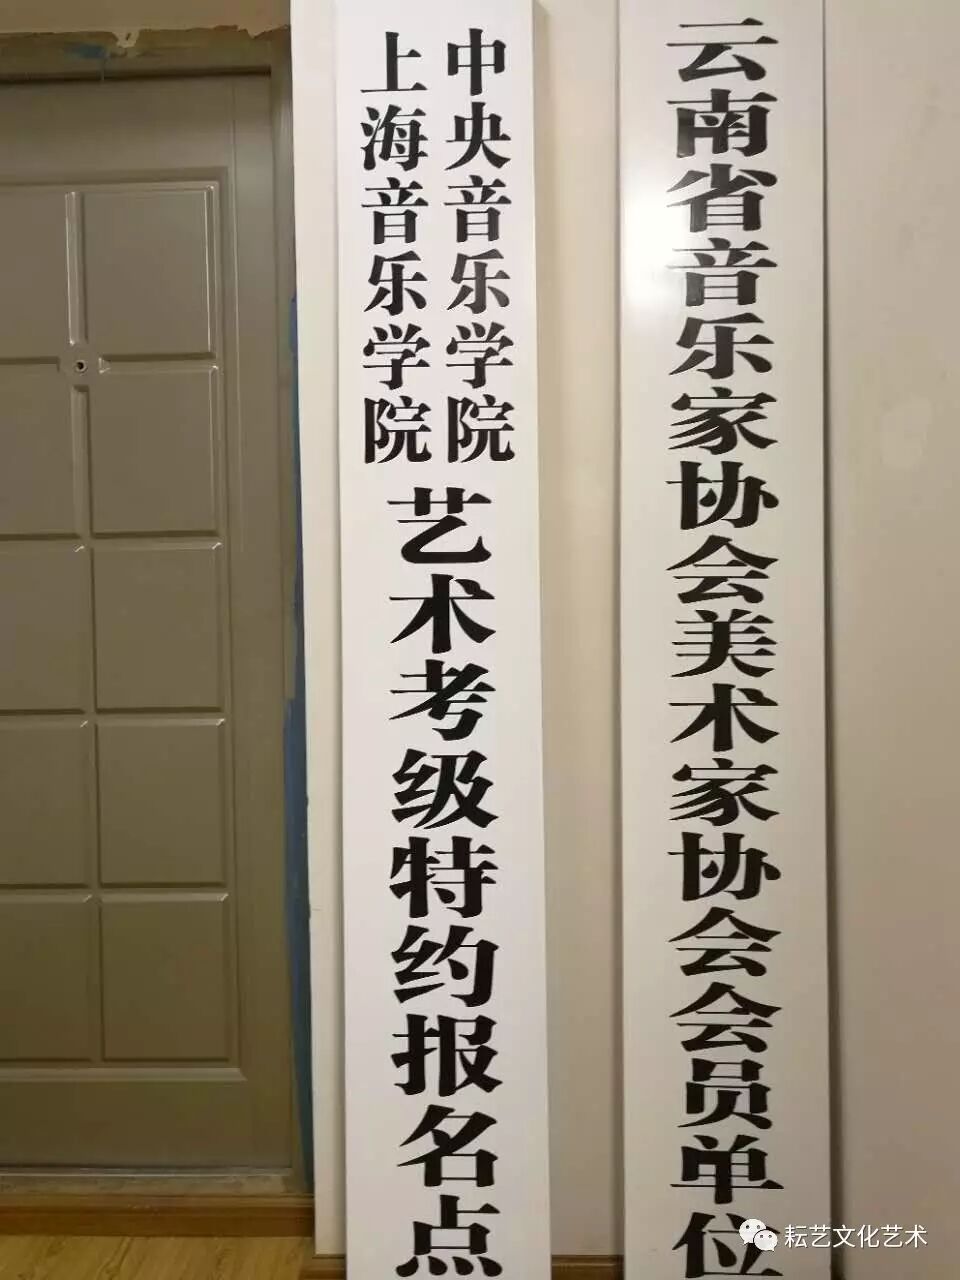 云南省音乐家协会美术家协会会员单位
中央音乐学院
上海音乐学院
艺术考级特约报名点
耘艺文化艺术